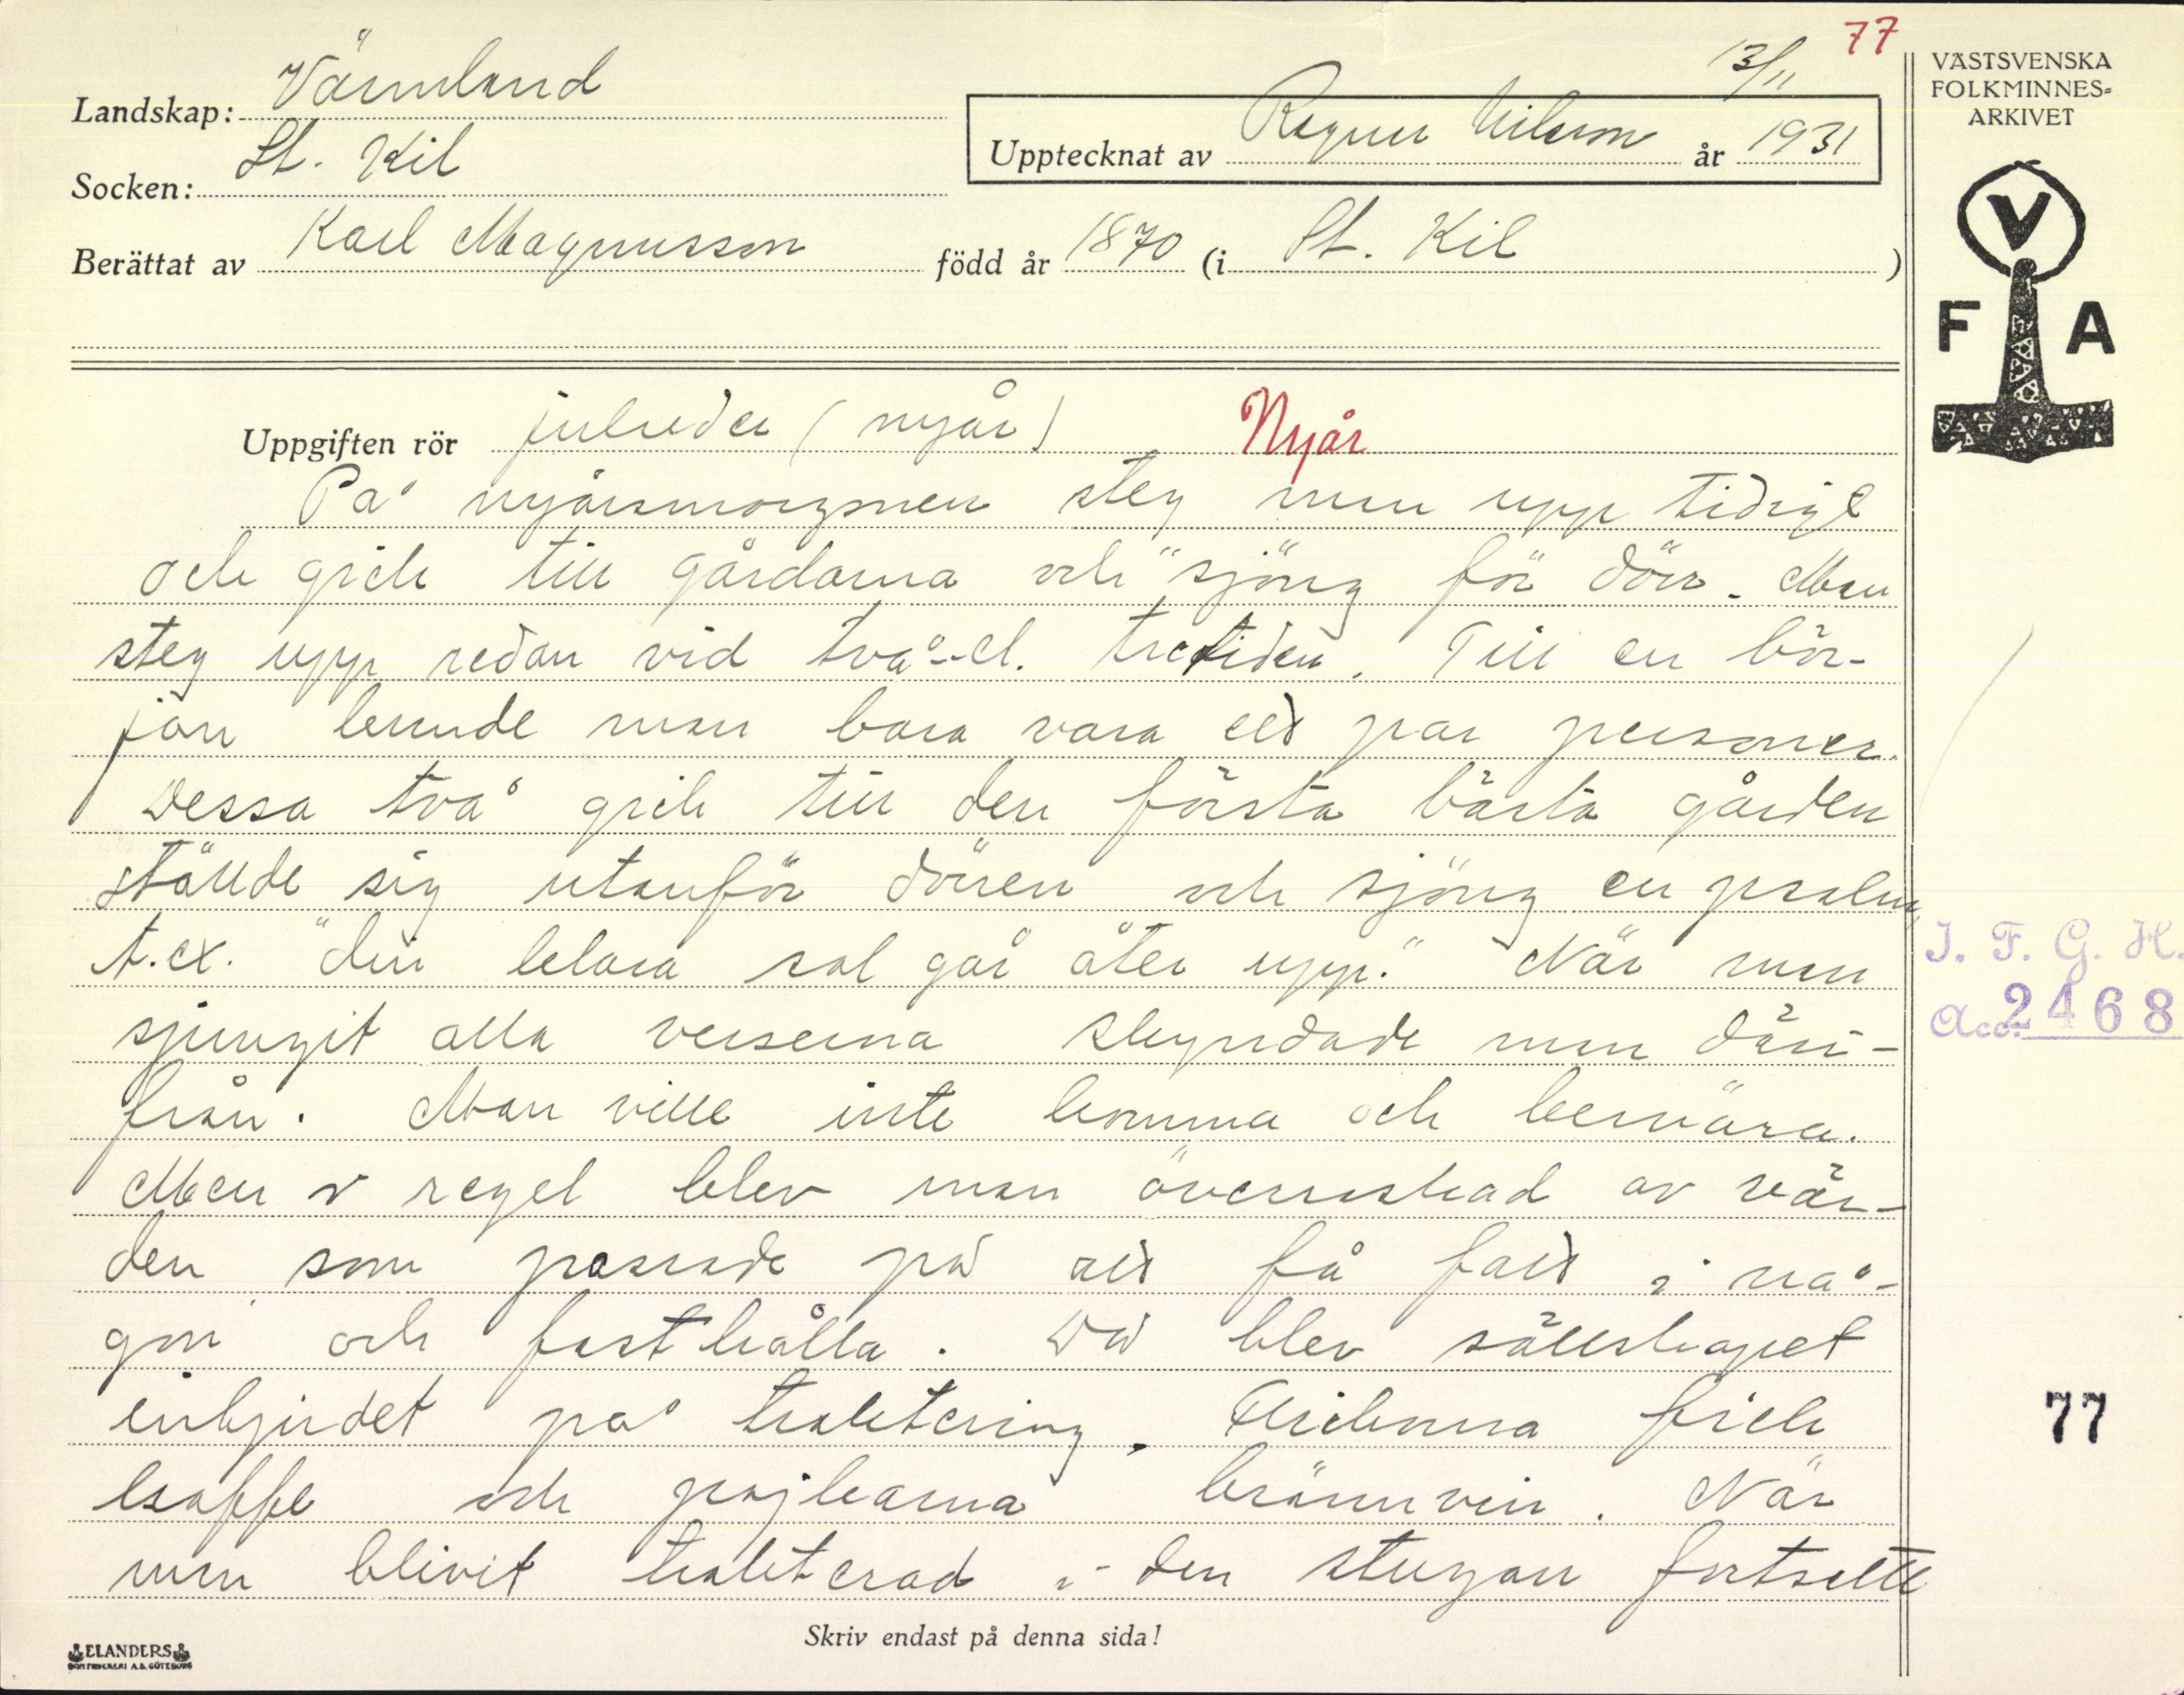 77
13/11
Landskap: Värmland
Socken: St. Kil
Upptecknat av Ragnar Nilsson år 1931
Berättat av Karl Magnusson född år 1870 (i St. Kil )
VÄSTSVENSKA
FOLKMINNES-
ARKIVET
V
F A
Uppgiften rör julseder (nyår) Nyår
På nyårsmorgonen steg man upp tidigt
och gick till gårdarna och "sjöng för dörr. Man
steg upp redan vid två-el. tretiden. Till en bör-
jan kunde man bara vara ett par personer.
Dessa två gick till den första bästa gården
ställde sig utanför dörren och sjöng en psalm,
t.ex. "din klara sol går åter upp." När man
sjungit alla verserna skyndade man däri-
från. Man ville inte komma och besvära.
Men i regel blev man överraskad av vär-
den som passade på att få fatt i nå-
gon och fasthålla. Då blev sällskapet
inbjudet på traktering. Flickorna fick
kaffe och pojkarna brännvin. När
man blivit trakterad i den stugan fortsatte
I. F. G. H.
Acc. 2468
77
Skriv endast på denna sida!
ELANDERS
BOKTRYCKERI A.B. GÖTEBORG